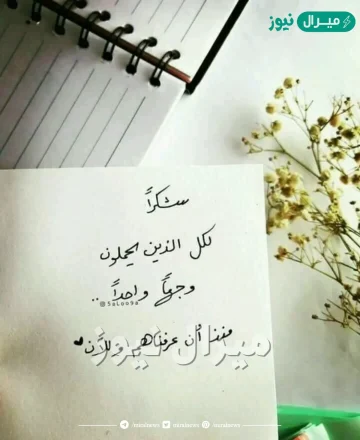 ميرال نيوز
شكراً
لكل الذين يحملون
وجهاً واحداً ..
@5aLoo9a
منذ أن عرفناهم وللآن
ميرال نيوز
miralnews miralnews miralnews